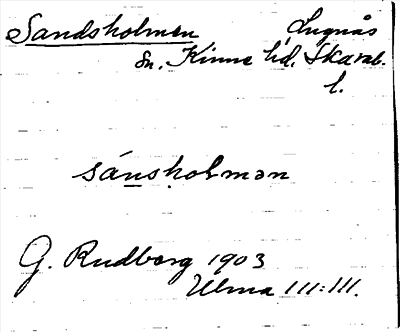 Sandsholmen Lugnås
sn. Kinne hd. Skarab.
l.
sánsholmən
G. Rudberg 1903
Ulma 111:111.